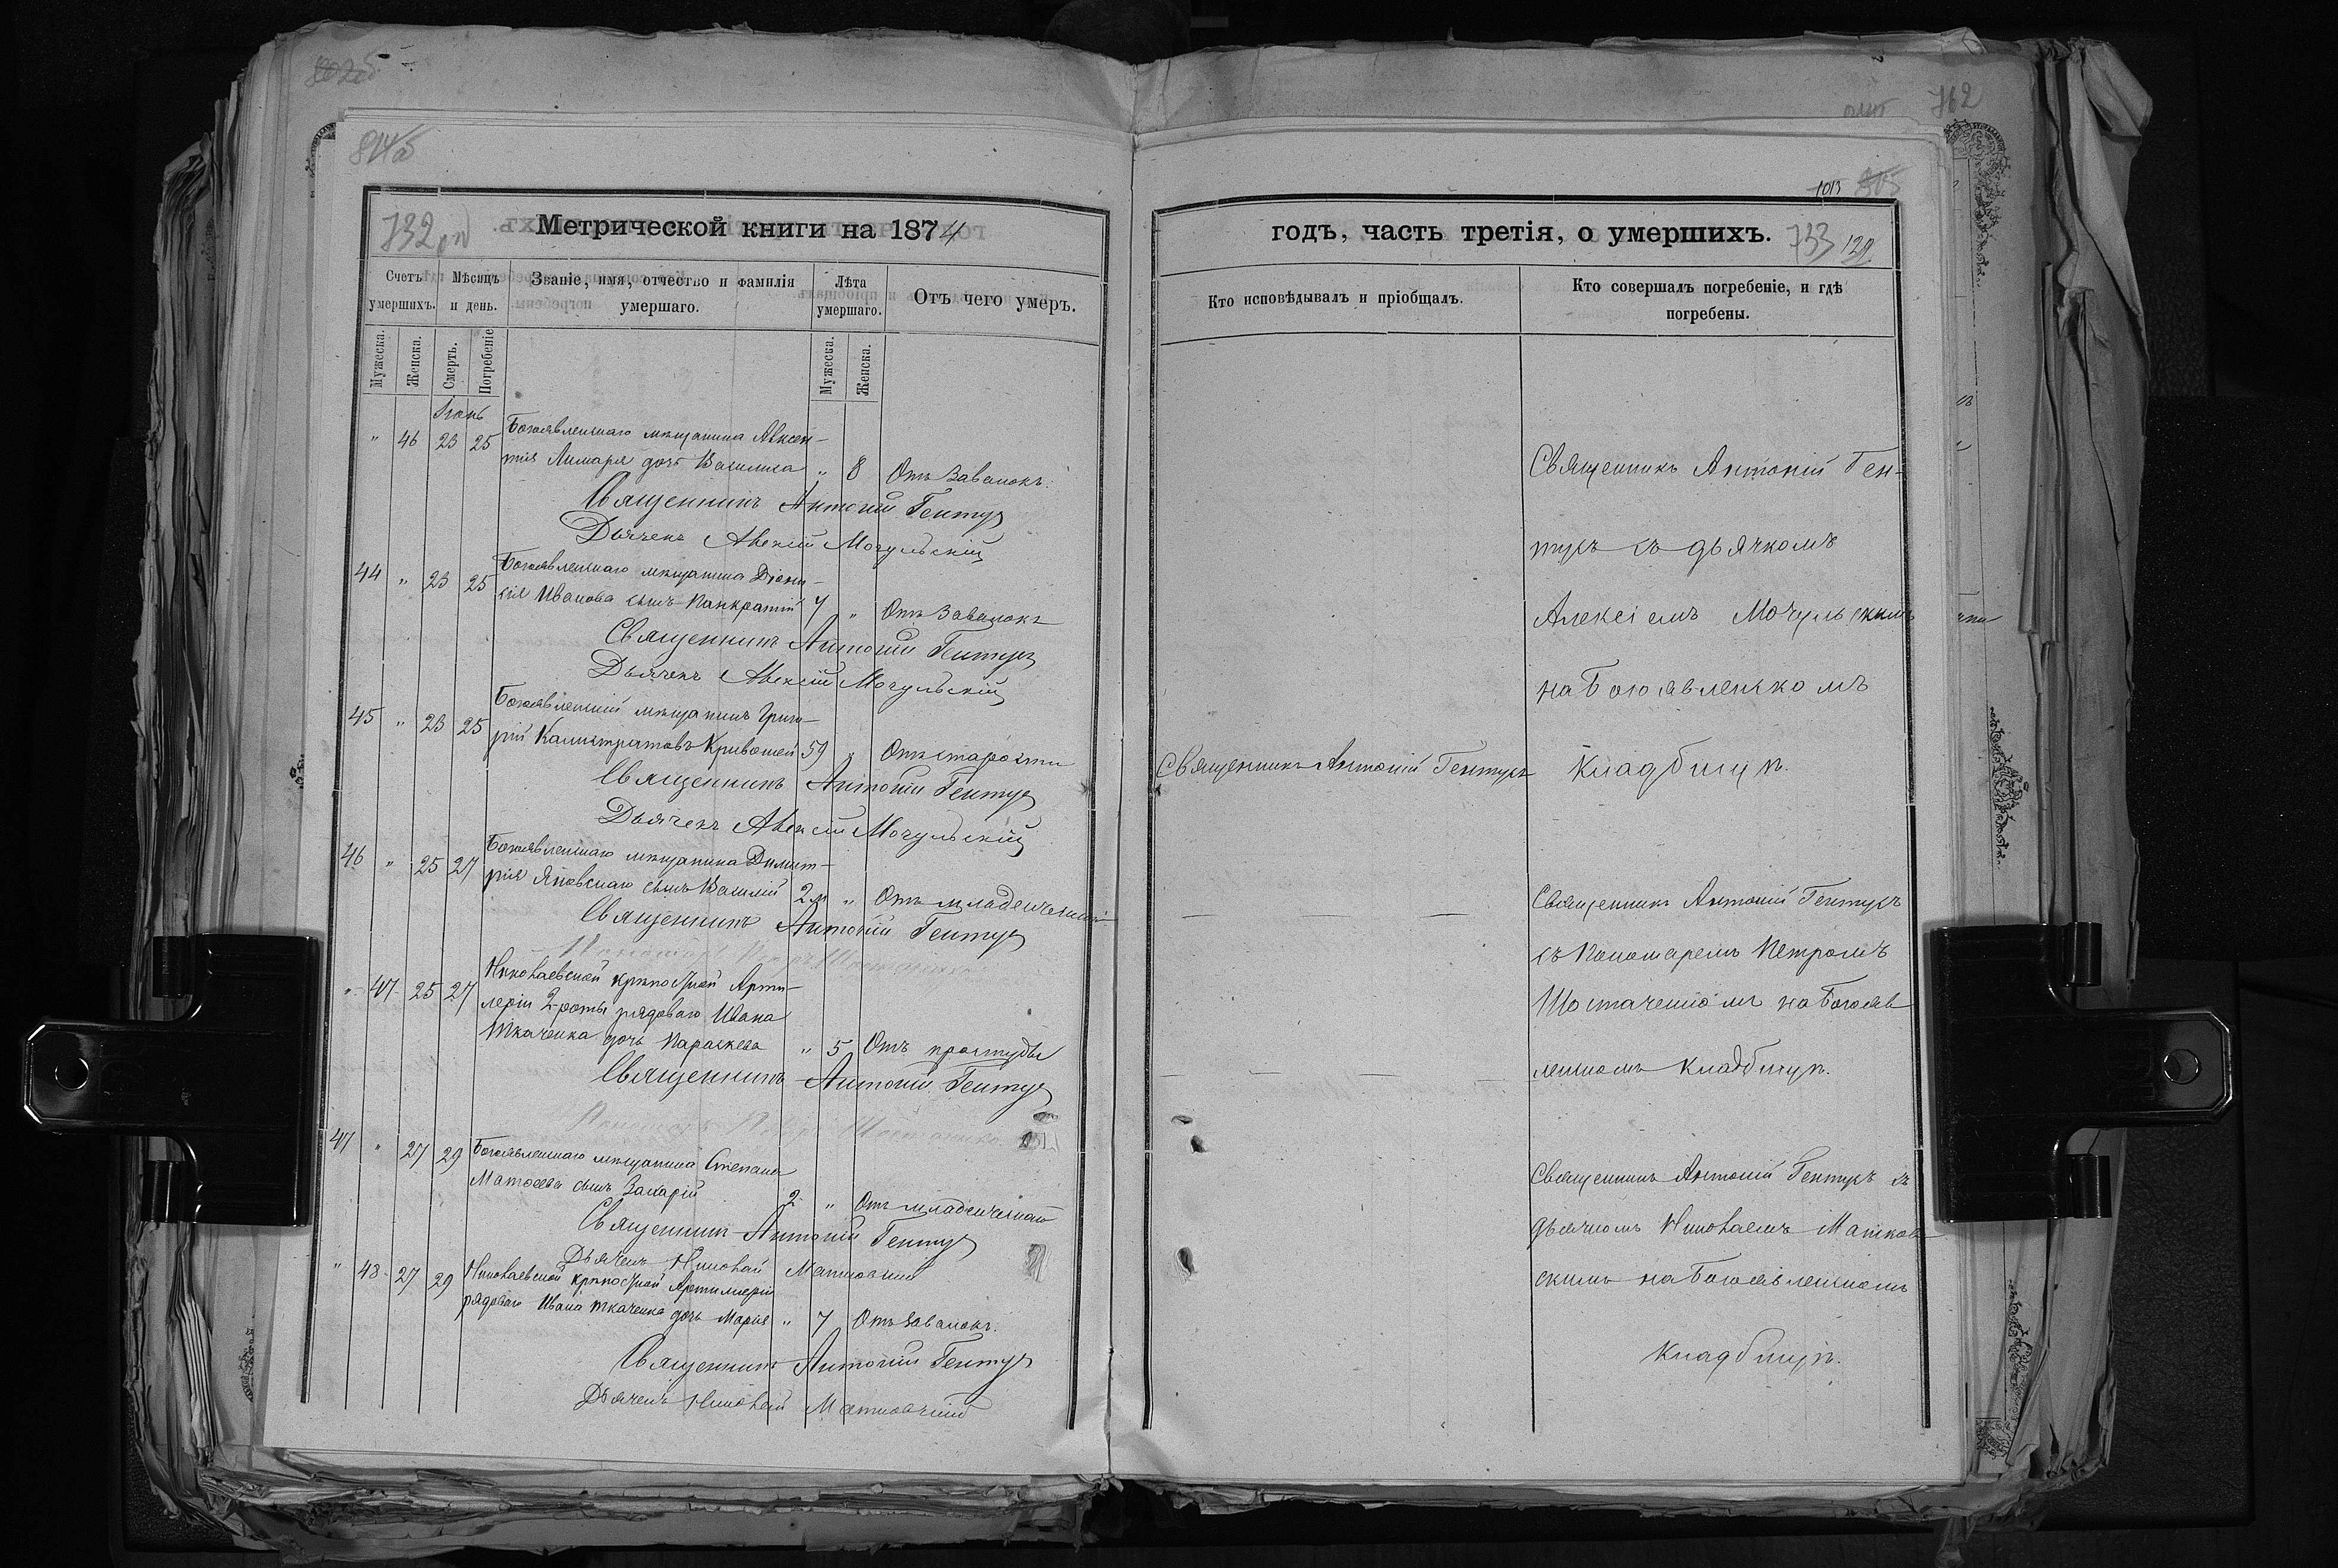 814об
732об
Метрической книги на 1874
Счетъ умершихъ.
Мѣсяцъ и день.
Званіе, имя, отчество и фамилія умершаго.
Лѣта умершаго.
Отъ чего умеръ.
Мужеска.
Женска.
Смерть.
Погребеніе
Мужеска.
Женска.
" 46 23 25 Богоявленскаго мѣщанина Авксен-
тія Лимаря дочь Василиса " 8 Отъ Завалокъ.
Священникъ Антоній Гентукъ
Дьячекъ Алексій Мочульскій
44 " 23 25 Богоявленскаго мѣщанина Діони-
сія Иванова сынъ Панкратій 7 " Отъ Завалокъ
Священникъ Антоній Гентукъ
Дьячекъ Алексій Мочульскій
45 " 23 25 Богоявленскій мѣщанинъ Григо-
рій Калистратовъ Кривошей 59 " Отъ старости
Священникъ Антоній Гентукъ
Дьячекъ Алексій Мочульскій
46 " 25 27 Богоявленскаго мѣщанина Димит-
рія Яновскаго сынъ Василій 2 м " Отъ младенческой
Священникъ Антоній Гентукъ
" 47 25 27 Николаевской крѣпостной Арти-
леріи 2 роты рядоваго Ивана
Ткаченка дочь Параскева " 5 Отъ простуды
Священникъ Антоній Гентукъ
47 " 27 29 Богоявленскаго мѣщанина Степана
Матвеева сынъ Захарій 2 " Отъ младенческой
Священникъ Антоній Гентукъ
Дьячекъ Николай Матковскій
" 48 27 29 Николаевской крѣпостной Артиллеріи
рядоваго Ивана Ткаченка дочь Марія " 7 Отъ Завалокъ.
Священникъ Антоній Гентукъ
Дьячекъ Николай Матковскій
762
1013 805
годъ, часть третія, о умершихъ.
733 129
Кто исповѣдывалъ и пріобщалъ.
Кто совершалъ погребеніе, и гдѣ погребены.
Священникъ Антоній Ген-
тукъ съ дьячкомъ
Алексіемъ Мочульскимъ
на Богоявленскомъ
Священникъ Антоній Гентукъ кладбищѣ.
Священникъ Антоній Гентукъ
съ Пономаремъ Петромъ
Шостаченкомъ на Богояв
ленскомъ кладбищѣ.
Священникъ Антоній Гентукъ съ
дьячкомъ Николаемъ Матков-
скимъ на Богоявленскомъ
кладбищѣ.